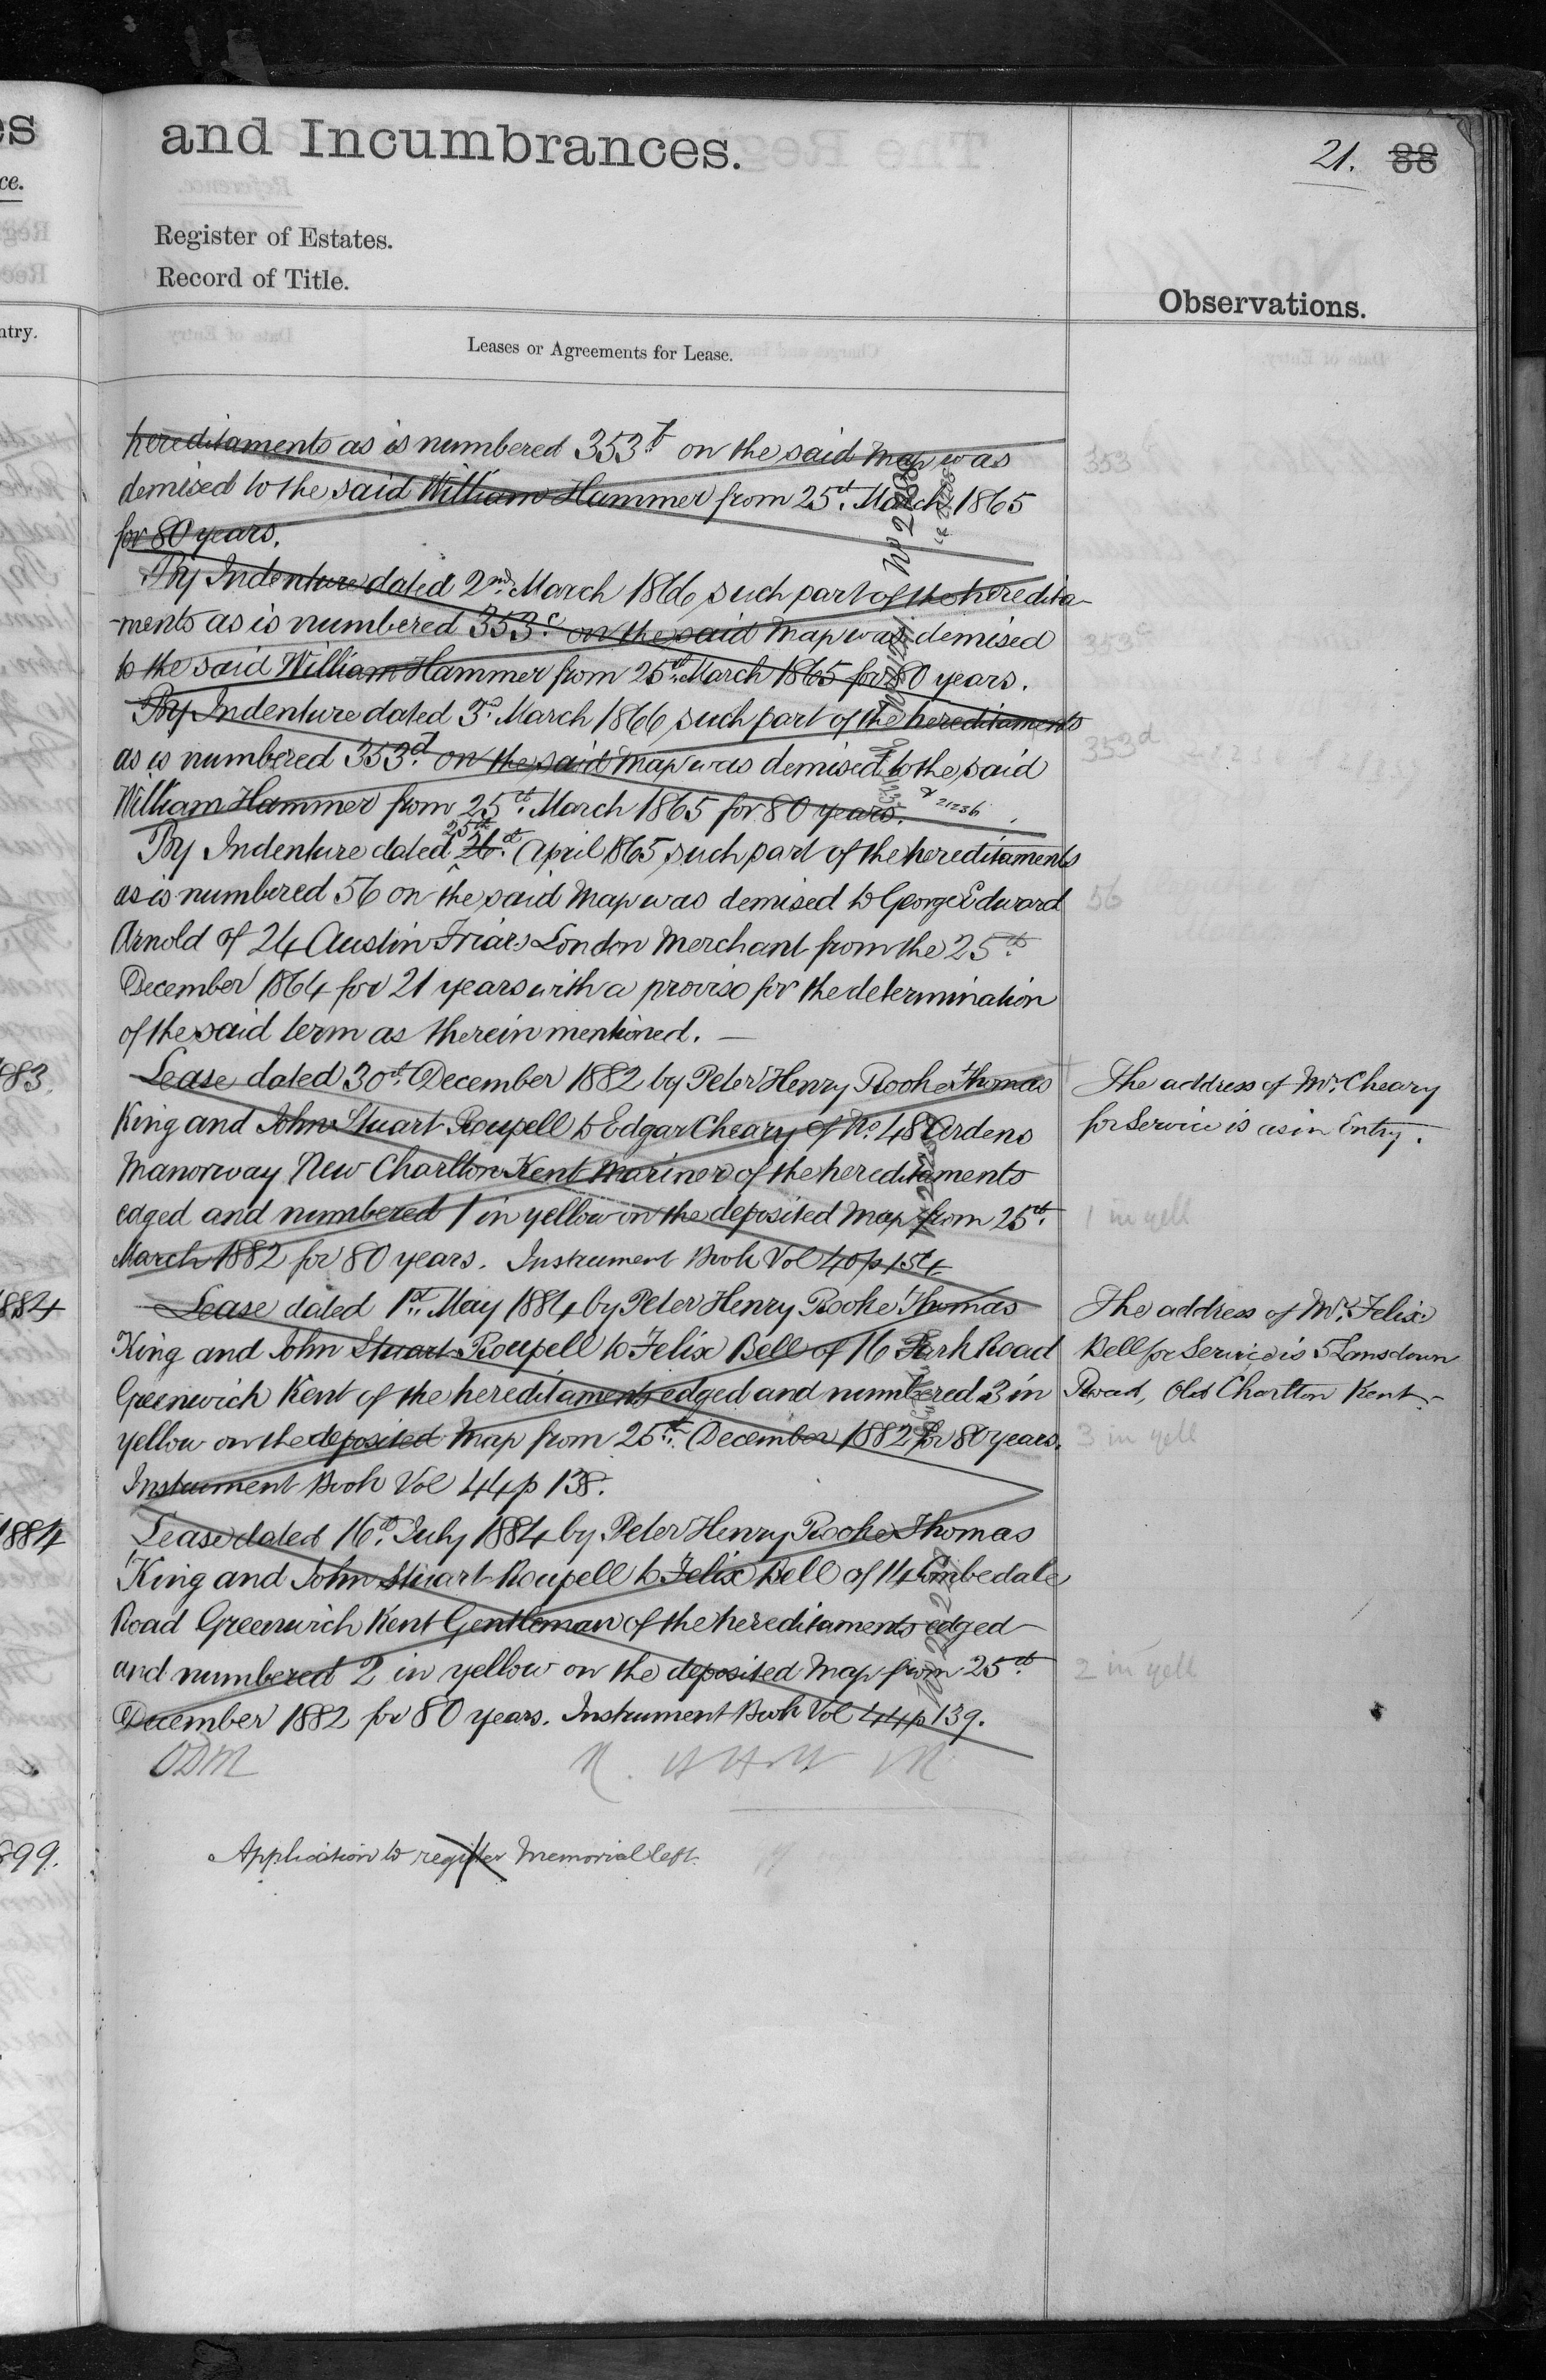 and Incumbrances.
21. 88
Register of Estates.
Record of Title.
Observations.
Leases or Agreements for Lease.
hereditaments as is numbered 353b on the said Map was
demised to the said William Hammer from 25th. March 1865
for 80 years.
By Indenture dated 2nd. March 1866 such part of the heredita-
-ments as is numbered 353c on the said Map was demised
to the said William Hammer from 25th. March 1865 for 80 years.
By Indenture dated 3d. March 1866 such part of the hereditaments
as is numbered 353d on the said Map was demised to the said
William Hammer from 25th. March 1865 for 80 years.
& 21236
25th
By Indenture dated 26th. April 1865 such part of the hereditaments
as is numbered 56 on the said Map was demised to George Edward
Arnold of 24 Austin Friars London Merchant from the 25th
December 1864 for 21 years with a proviso for the determination
of the said term as therein mentioned.
Lease dated 30th. December 1882 by Peter Henry Rooke Thomas
King and John Stuart Roupell to Edgar Cheary of No. 48 Ardens
Manorway New Charlton Kent Mariner of the hereditaments
edged and numbered 1 in yellow on the deposited Map from 25th.
March 1882 for 80 years. Instrument Book Vol 40 p 154
Lease dated 1st. May 1884 by Peter Henry Rooke Thomas
King and John Stuart Roupell to Felix Bell of 16 Park Road
Greenwich Kent of the hereditaments edged and numbered 3 in
yellow on the deposited Map from 25th. December 1882 for 80 years.
Instrument Book Vol 44 p 138.
Lease dated 16th. July 1884 by Peter Henry Rooke Thomas
King and John Stuart Roupell to Felix Bell of 14 Combedale
Road Greenwich Kent Gentleman of the hereditaments edged
and numbered 2 in yellow on the deposited Map from 25th
December 1882 for 80 years. Instrument Book Vol 44 p 139.
ODM
Application to register Memorial left.
353
353c
353d
56
The address of Mr. Cheary
for Service is as in Entry.
1 in yell
The address of Mr. Felix
Bell for Service is 5 Lansdown
Road, Old Charlton Kent
3 in yell
2 in yell
es
ce.
ntry.
83.
884
1884
899.